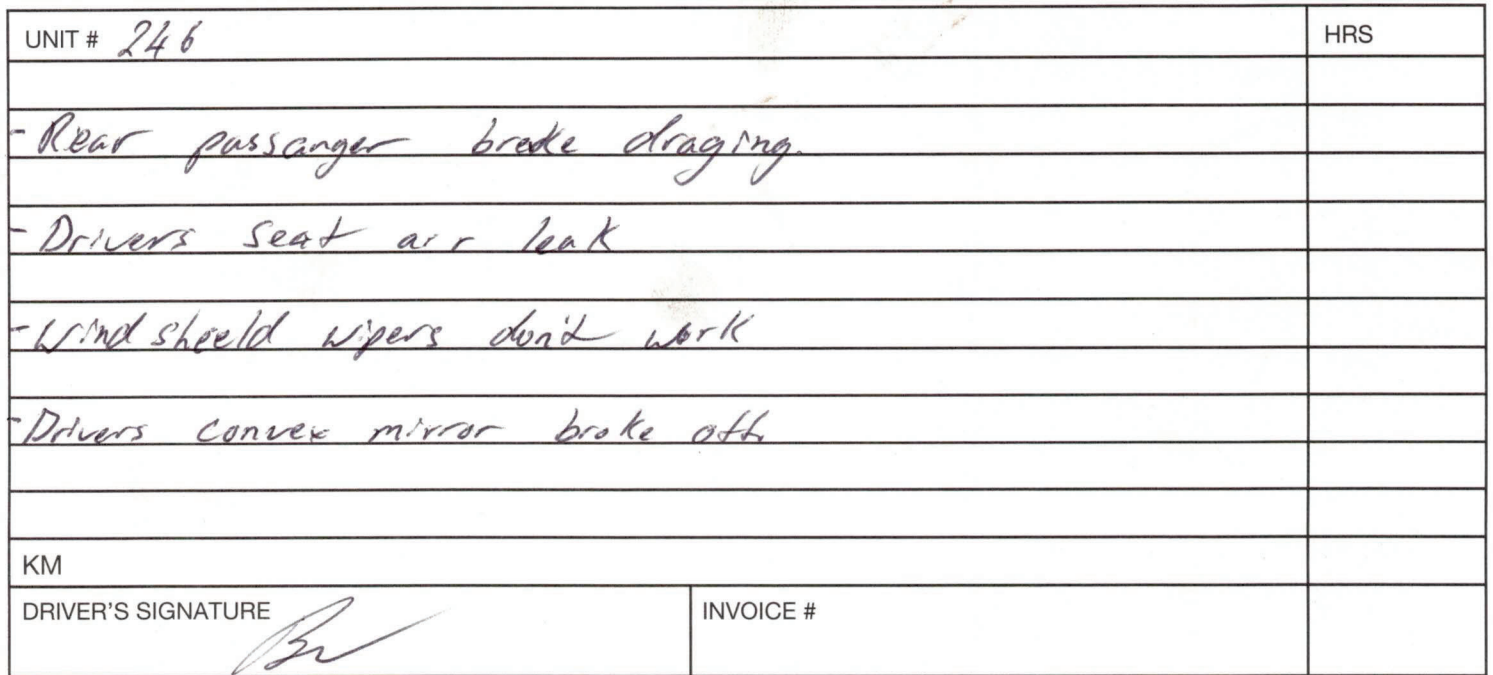 UNIT # 246 HRS
- Rear passanger brake draging.
- Drivers seat air leak
- Windsheeld wipers don't work
- Drivers convex mirror broke off.
KM
DRIVER'S SIGNATURE INVOICE #